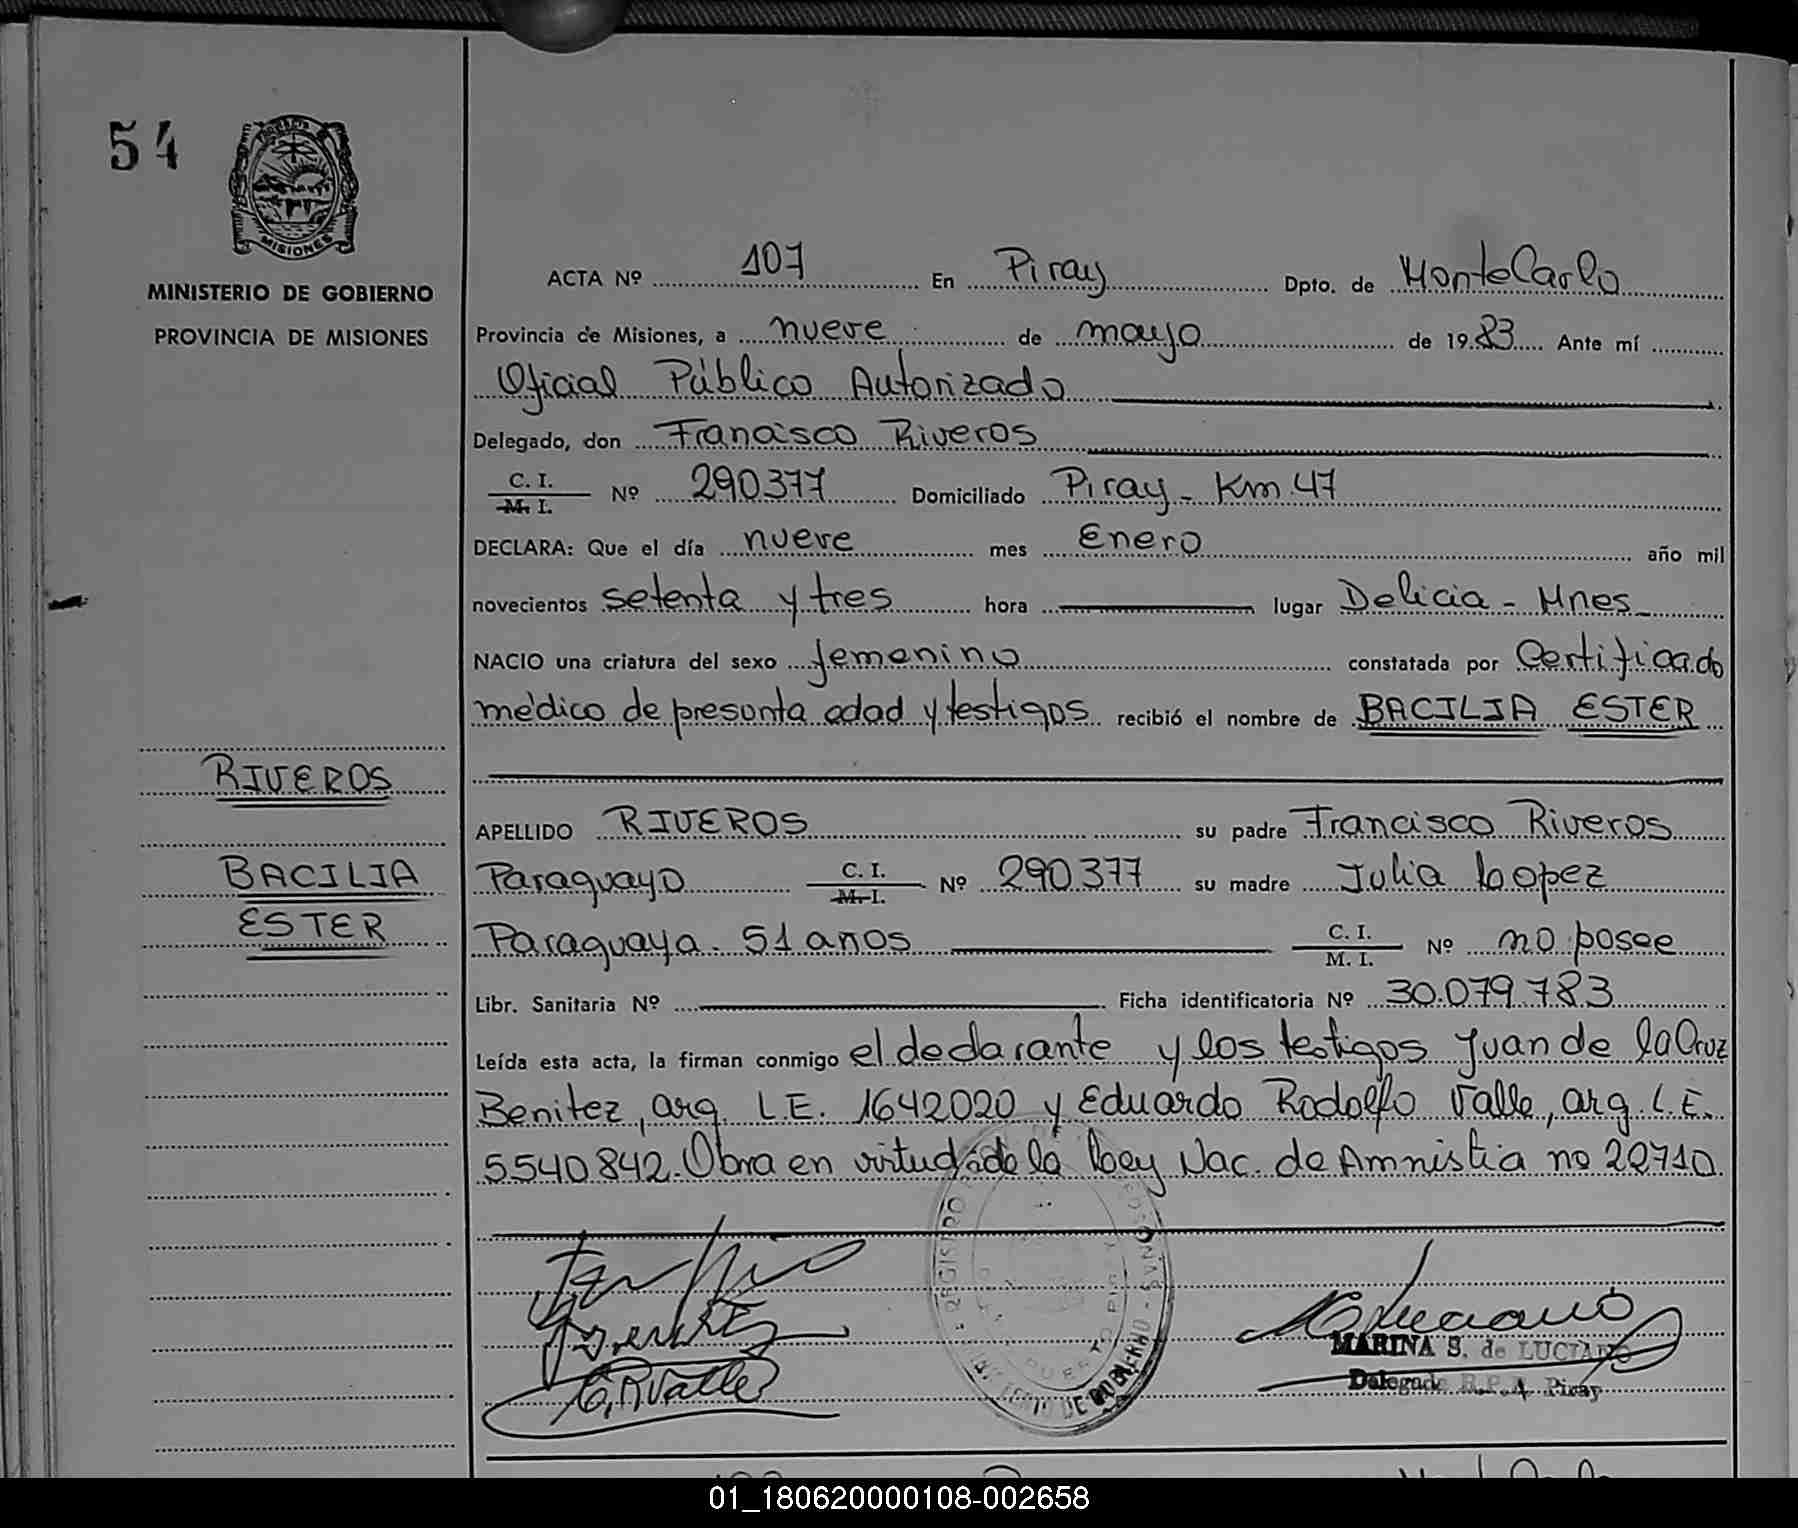 54
MISIONES
MINISTERIO DE GOBIERNO
PROVINCIA DE MISIONES
ACTA Nº 107 En Piray Dpto. de MonteCarlo
Provincia de Misiones, a nueve de mayo de 1983 Ante mí
Oficial Público Autorizado
Delegado, don Francisco Riveros
C. I.
M. I. Nº 290377 Domiciliado Piray - Km. 47
DECLARA: Que el día nueve mes Enero año mil
novecientos setenta y tres hora lugar Delicia - Mnes
NACIO una criatura del sexo femenino constatada por Certificado
médico de presunta edad y testigos recibió el nombre de BACILIA ESTER
RIVEROS
BACILIA
ESTER
APELLIDO RIVEROS su padre Francisco Riveros
Paraguayo C. I.
M. I. Nº 290377 su madre Julia Lopez
Paraguaya. 51 anos C. I.
M. I. Nº no posee
Libr. Sanitaria Nº Ficha identificatoria Nº 30.079.783
Leída esta acta, la firman conmigo el declarante y los testigos Juan de la Cruz
Benitez, arg. L.E. 1642020 y Eduardo Rodolfo Valle, arg. L.E.
5540842. Obra en virtud de la Ley Nac. de Amnistia no 22710
E.R.Valle
MARINA S. de LUCIANO
Delegado R.P.A. Piray
01_180620000108-002658